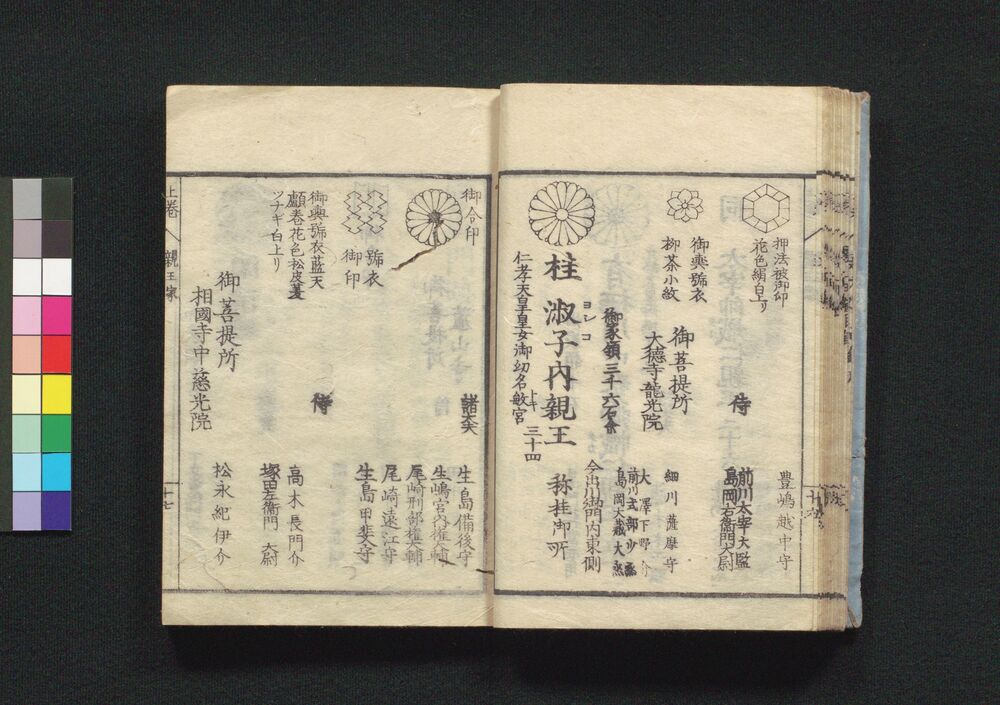 押法被御印
花色絹白上リ
豊嶋越中守
侍
前川太宰大監
島岡右衛門大尉
御輿號衣
柳茶小紋
御菩提所
大德寺龍光院
細川薩摩守
大澤下野介
前川式部少丞
島岡大蔵大丞
御家領三千六石余
桂淑子内親王
ヨシコ
三十四
今出川御門内東側
称桂御所
仁孝天皇皇女御幼名敏宮
トキ
御合印
諸大夫
生島備後守
生嶋宮内権大輔
尾崎刑部権大輔
尾崎遠江守
生島甲斐守
號衣
御印
御輿號衣藍天
顱巻花色松皮菱
ツナギ白上リ
侍
高木長門介
塚田左衛門大尉
松永紀伊介
御菩提所
相國寺中慈光院
上巻
親王家
十七